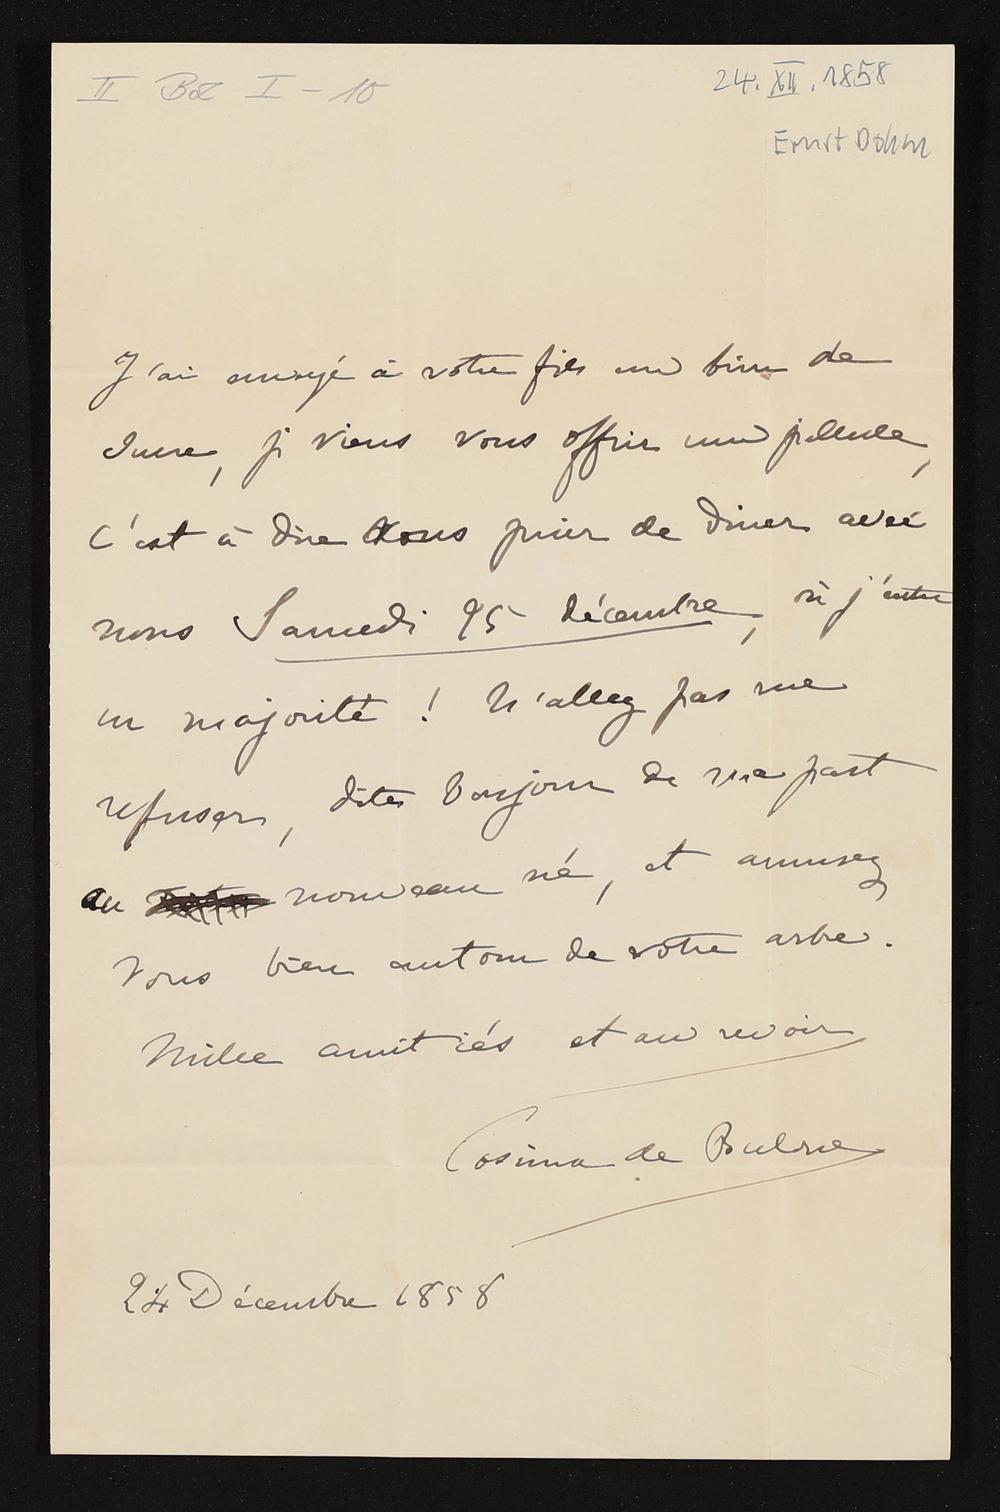 II Bd I - 10
24. XII. 1858
Ernst Dohm
J'ai envoyé à votre fils un brin de
sucre, je viens vous offrir une pillule,
c'est à dire vous prier de diner avec
nous Samedi 25 décembre, où j'entre
en majorité ! N'allez pas me
refuser, dites bonjour de ma part
au nouveau né, et amusez
vous bien autour de votre arbre.
Mille amitiés et au revoir
Cosima de Bulow
24 Décembre 1858